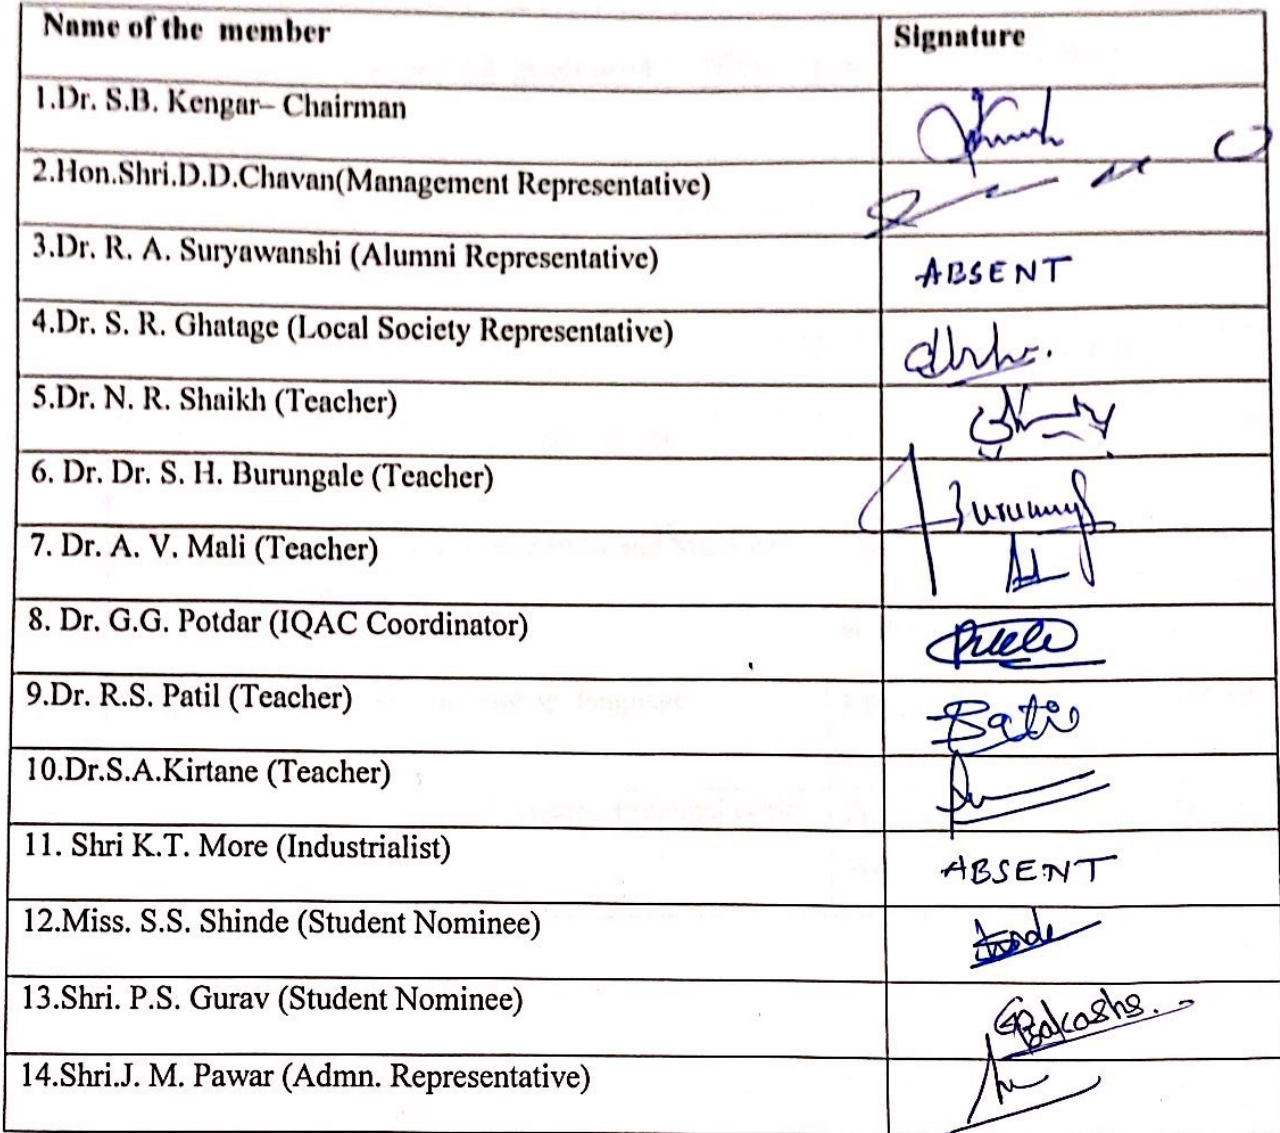 Name of the member Signature
1.Dr. S.B. Kengar– Chairman
2.Hon.Shri.D.D.Chavan(Management Representative)
3.Dr. R. A. Suryawanshi (Alumni Representative) ABSENT
4.Dr. S. R. Ghatage (Local Society Representative)
5.Dr. N. R. Shaikh (Teacher)
6. Dr. Dr. S. H. Burungale (Teacher)
7. Dr. A. V. Mali (Teacher)
8. Dr. G.G. Potdar (IQAC Coordinator)
9.Dr. R.S. Patil (Teacher)
10.Dr.S.A.Kirtane (Teacher)
11. Shri K.T. More (Industrialist) ABSENT
12.Miss. S.S. Shinde (Student Nominee)
13.Shri. P.S. Gurav (Student Nominee)
14.Shri.J. M. Pawar (Admn. Representative)